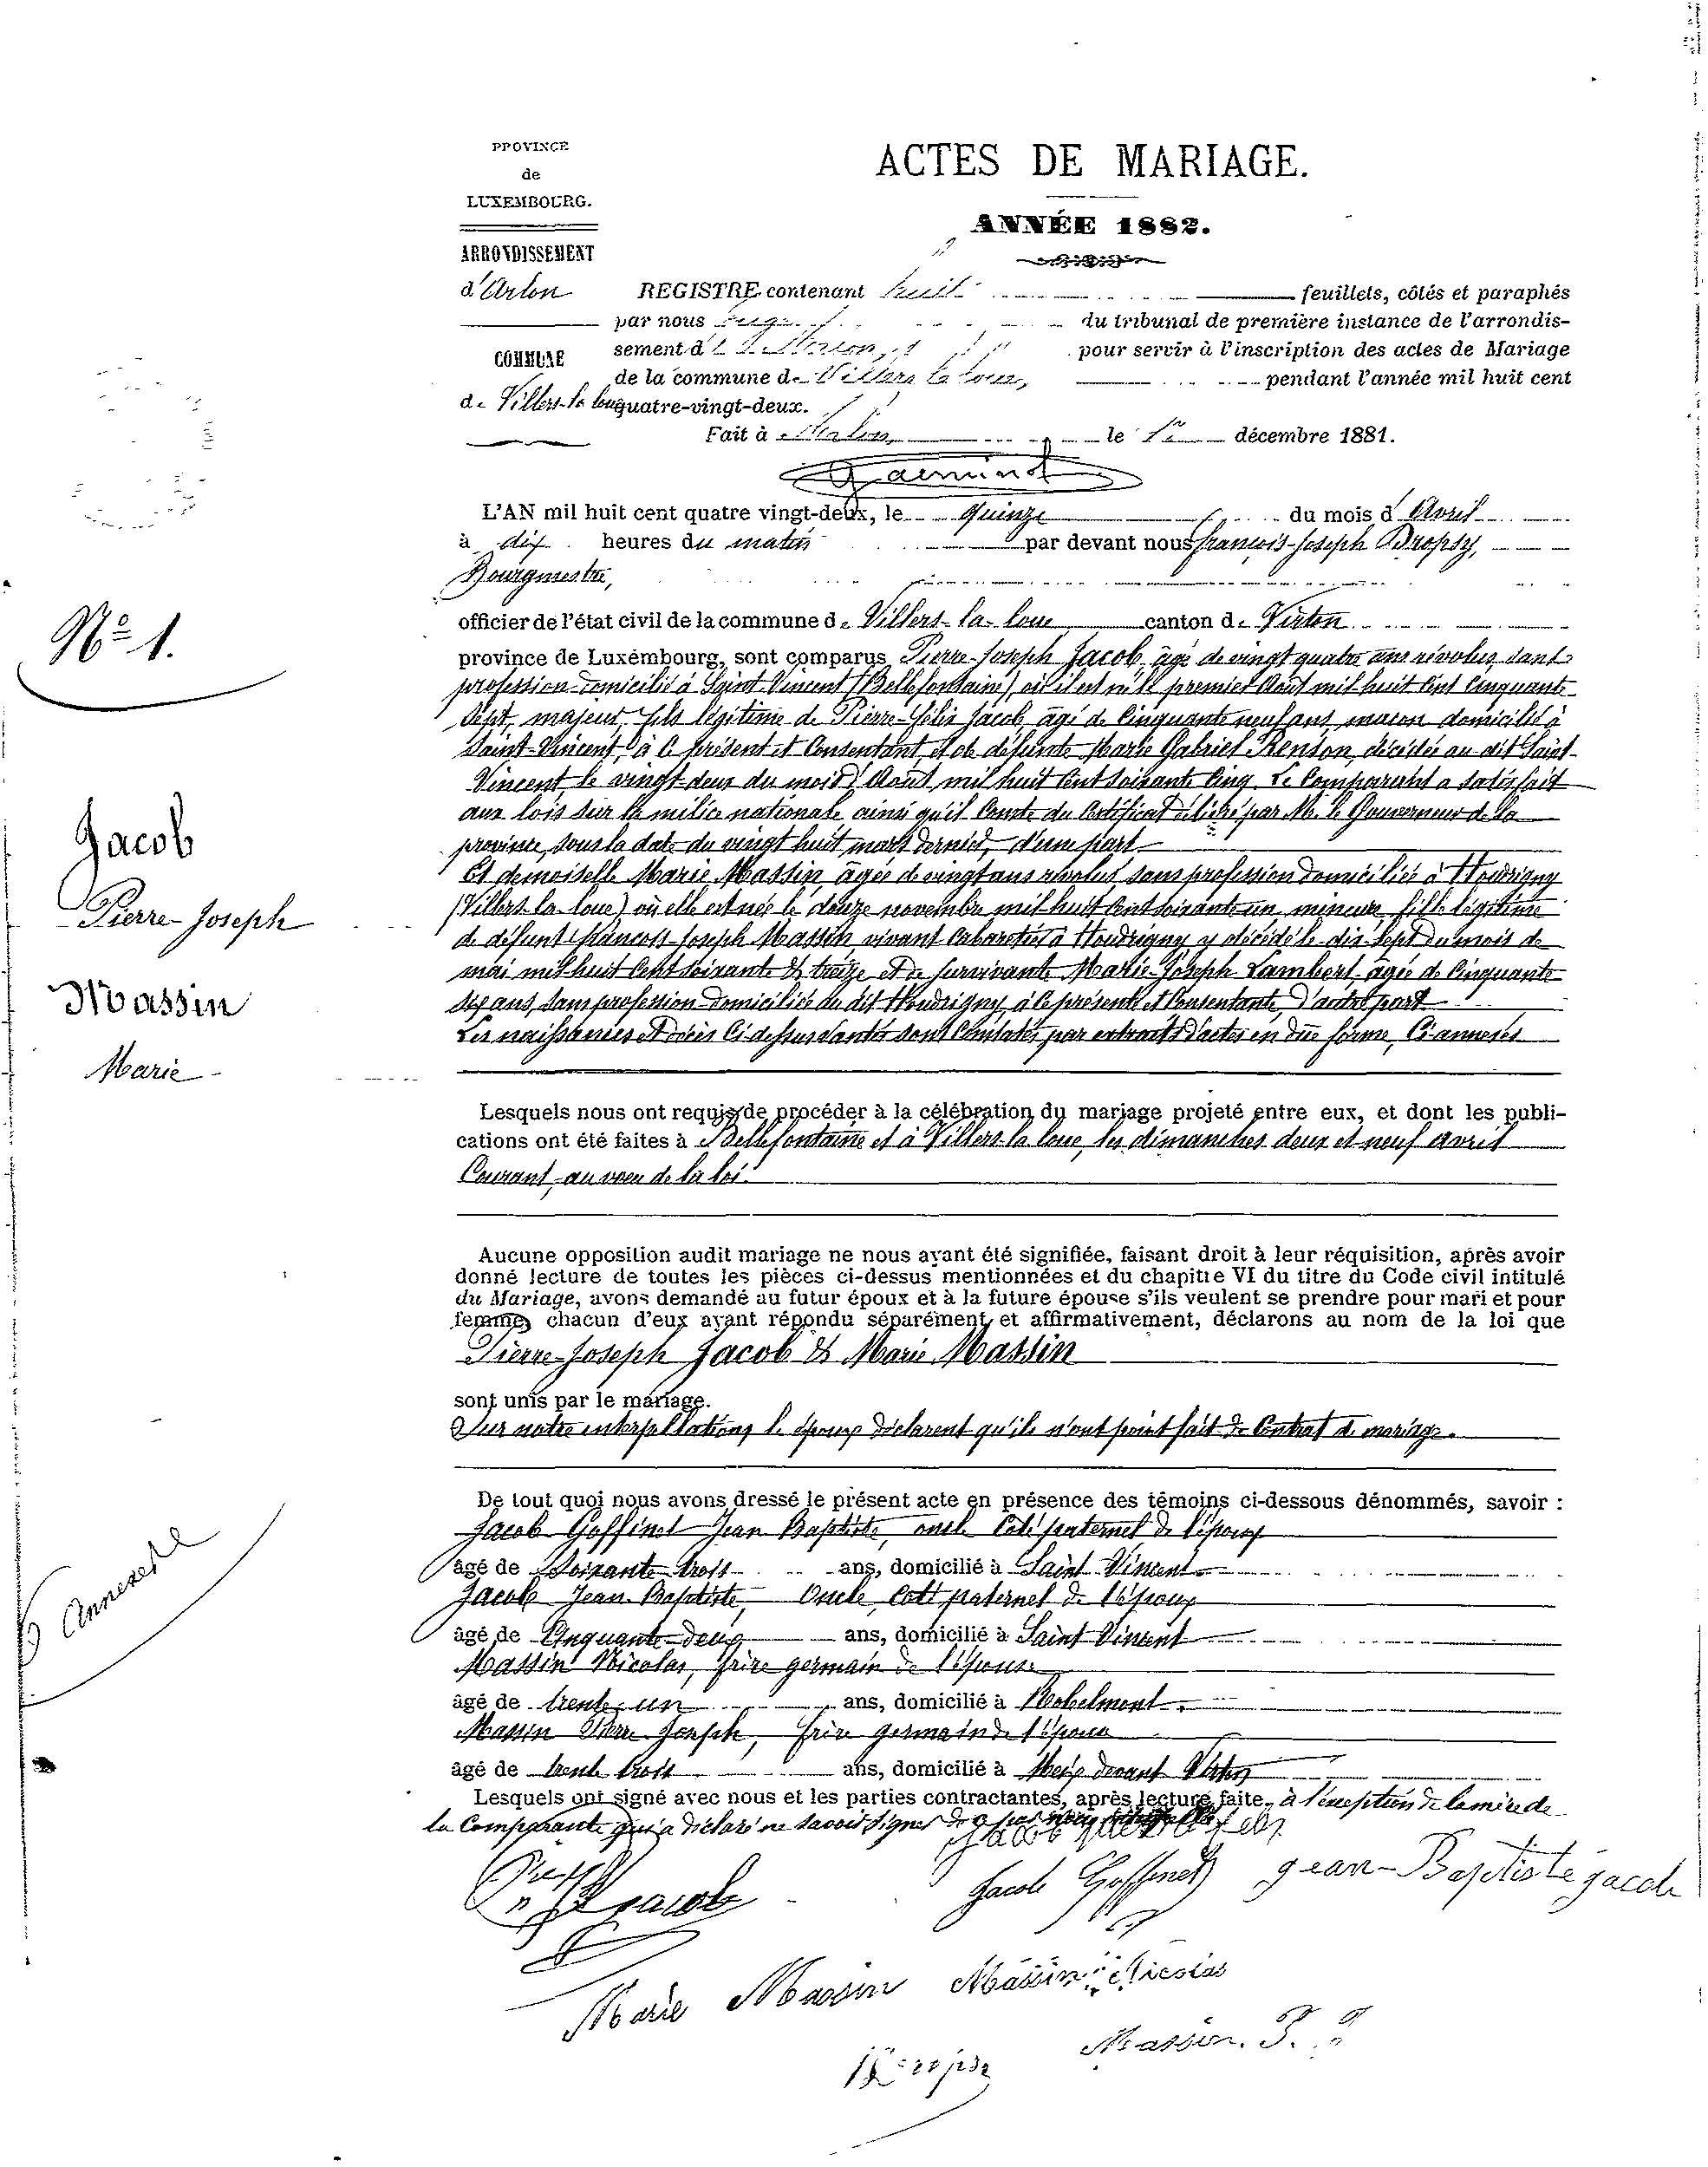 PROVINCE
de
LUXEMBOURG.
ARRONDISSEMENT
d'Arlon
COMMUNE
de Villers-la-loue
ACTES DE MARIAGE.
ANNÉE 1882.
REGISTRE contenant huit feuillets, côtés et paraphés
par nous juge du tribunal de première instance de l'arrondis-
sement d'Arlon, pour servir à l'inscription des actes de Mariage
de la commune de Villers la loue, pendant l'année mil huit cent
quatre-vingt-deux.
Fait à Arlon, le 1er décembre 1881.
N° 1.
Jacob
Pierre-Joseph
Massin
Marie
L'AN mil huit cent quatre vingt-deux, le quinze du mois d'Avril
à dix heures du matin par devant nous françois-Joseph Dropsy,
Bourgmestre,
officier de l'état civil de la commune de Villers-la-loue canton de Virton
province de Luxembourg, sont comparus Pierre-Joseph Jacob, âgé de vingt quatre ans révolus, sans
profession domicilié à Saint-Vincent (Bellefontaine), où il est né le premier Août mil huit Cent Cinquante
Sept, majeur, fils légitime de Pierre-félix Jacob, âgé de Cinquante neuf ans, macon domicilié à
Saint-Vincent, à ce présent et Consentant, et de défunte Marie Gabriel Renson, décédée au dit Saint-
Vincent le vingt-deux du mois d'Août mil huit Cent soixante Cinq. Le Comparant a satisfait
aux lois sur la milice nationale ainsi qu'il Conste du Certificat délivré par M. le Gouverneur de la
province, sous la date du vingt huit mars dernier, d'une part
Et demoiselle Marie Massin, âgée de vingt ans révolus, sans profession domiciliée à Houdrigny
(Villers-la-loue) où elle est née le douze novembre mil huit Cent soixante un, mineure, fille légitime
de défunt françois-Joseph Massin vivant Cabaretier à Houdrigny, y décédé le dix-sept du mois de
mai mil huit Cent soixante & treize et de survivante Marie-Joseph Lambert âgée de Cinquante
six ans, sans profession domiciliée au dit Houdrigny, à ce présente et Consentante, d'autre part
Les naissances et décès Ci-dessus vantés sont Constatés par extraits d'actes en due forme, Ci-annexés
Lesquels nous ont requis de procéder à la célébration du mariage projeté entre eux, et dont les publi-
cations ont été faites à Bellefontaine et à Villers-la-loue, les dimanches deux et neuf avril
Courant, au voeu de la loi.
Aucune opposition audit mariage ne nous ayant été signifiée, faisant droit à leur réquisition, après avoir
donné lecture de toutes les pièces ci-dessus mentionnées et du chapitre VI du titre du Code civil intitulé
du Mariage, avons demandé au futur époux et à la future épouse s'ils veulent se prendre pour mari et pour
femme, chacun d'eux ayant répondu séparément et affirmativement, déclarons au nom de la loi que
Pierre-Joseph Jacob & Marie Massin
sont unis par le mariage.
Sur notre interpellation, le époux déclarent qu'ils n'ont point fait de Contrat de mariage.
De tout quoi nous avons dressé le présent acte en présence des témoins ci-dessous dénommés, savoir :
Jacob Goffinet Jean Baptiste, oncle Coté paternel de l'époux
âgé de Soixante trois ans, domicilié à Saint Vincent
Jacob Jean-Baptiste, Oncle, Coté paternel de l'époux
âgé de Cinquante-deux ans, domicilié à Saint Vincent
Massin Nicolas, frère germain de l'épouse
âgé de trente-un ans, domicilié à Robelmont
Massin Pierre Joseph, frère germain de l'épouse
âgé de trente trois ans, domicilié à Meix devant Virton
Lesquels ont signé avec nous et les parties contractantes, après lecture faite, à l'exception de la mère de
la Comparante qui a déclaré ne savoir signer de ce
6 Annexes
Jacob
Jacob Goffinet
Jean-Baptiste Jacob
Marie Massin
Massin Nicolas
Massin. P. J
Dropsy